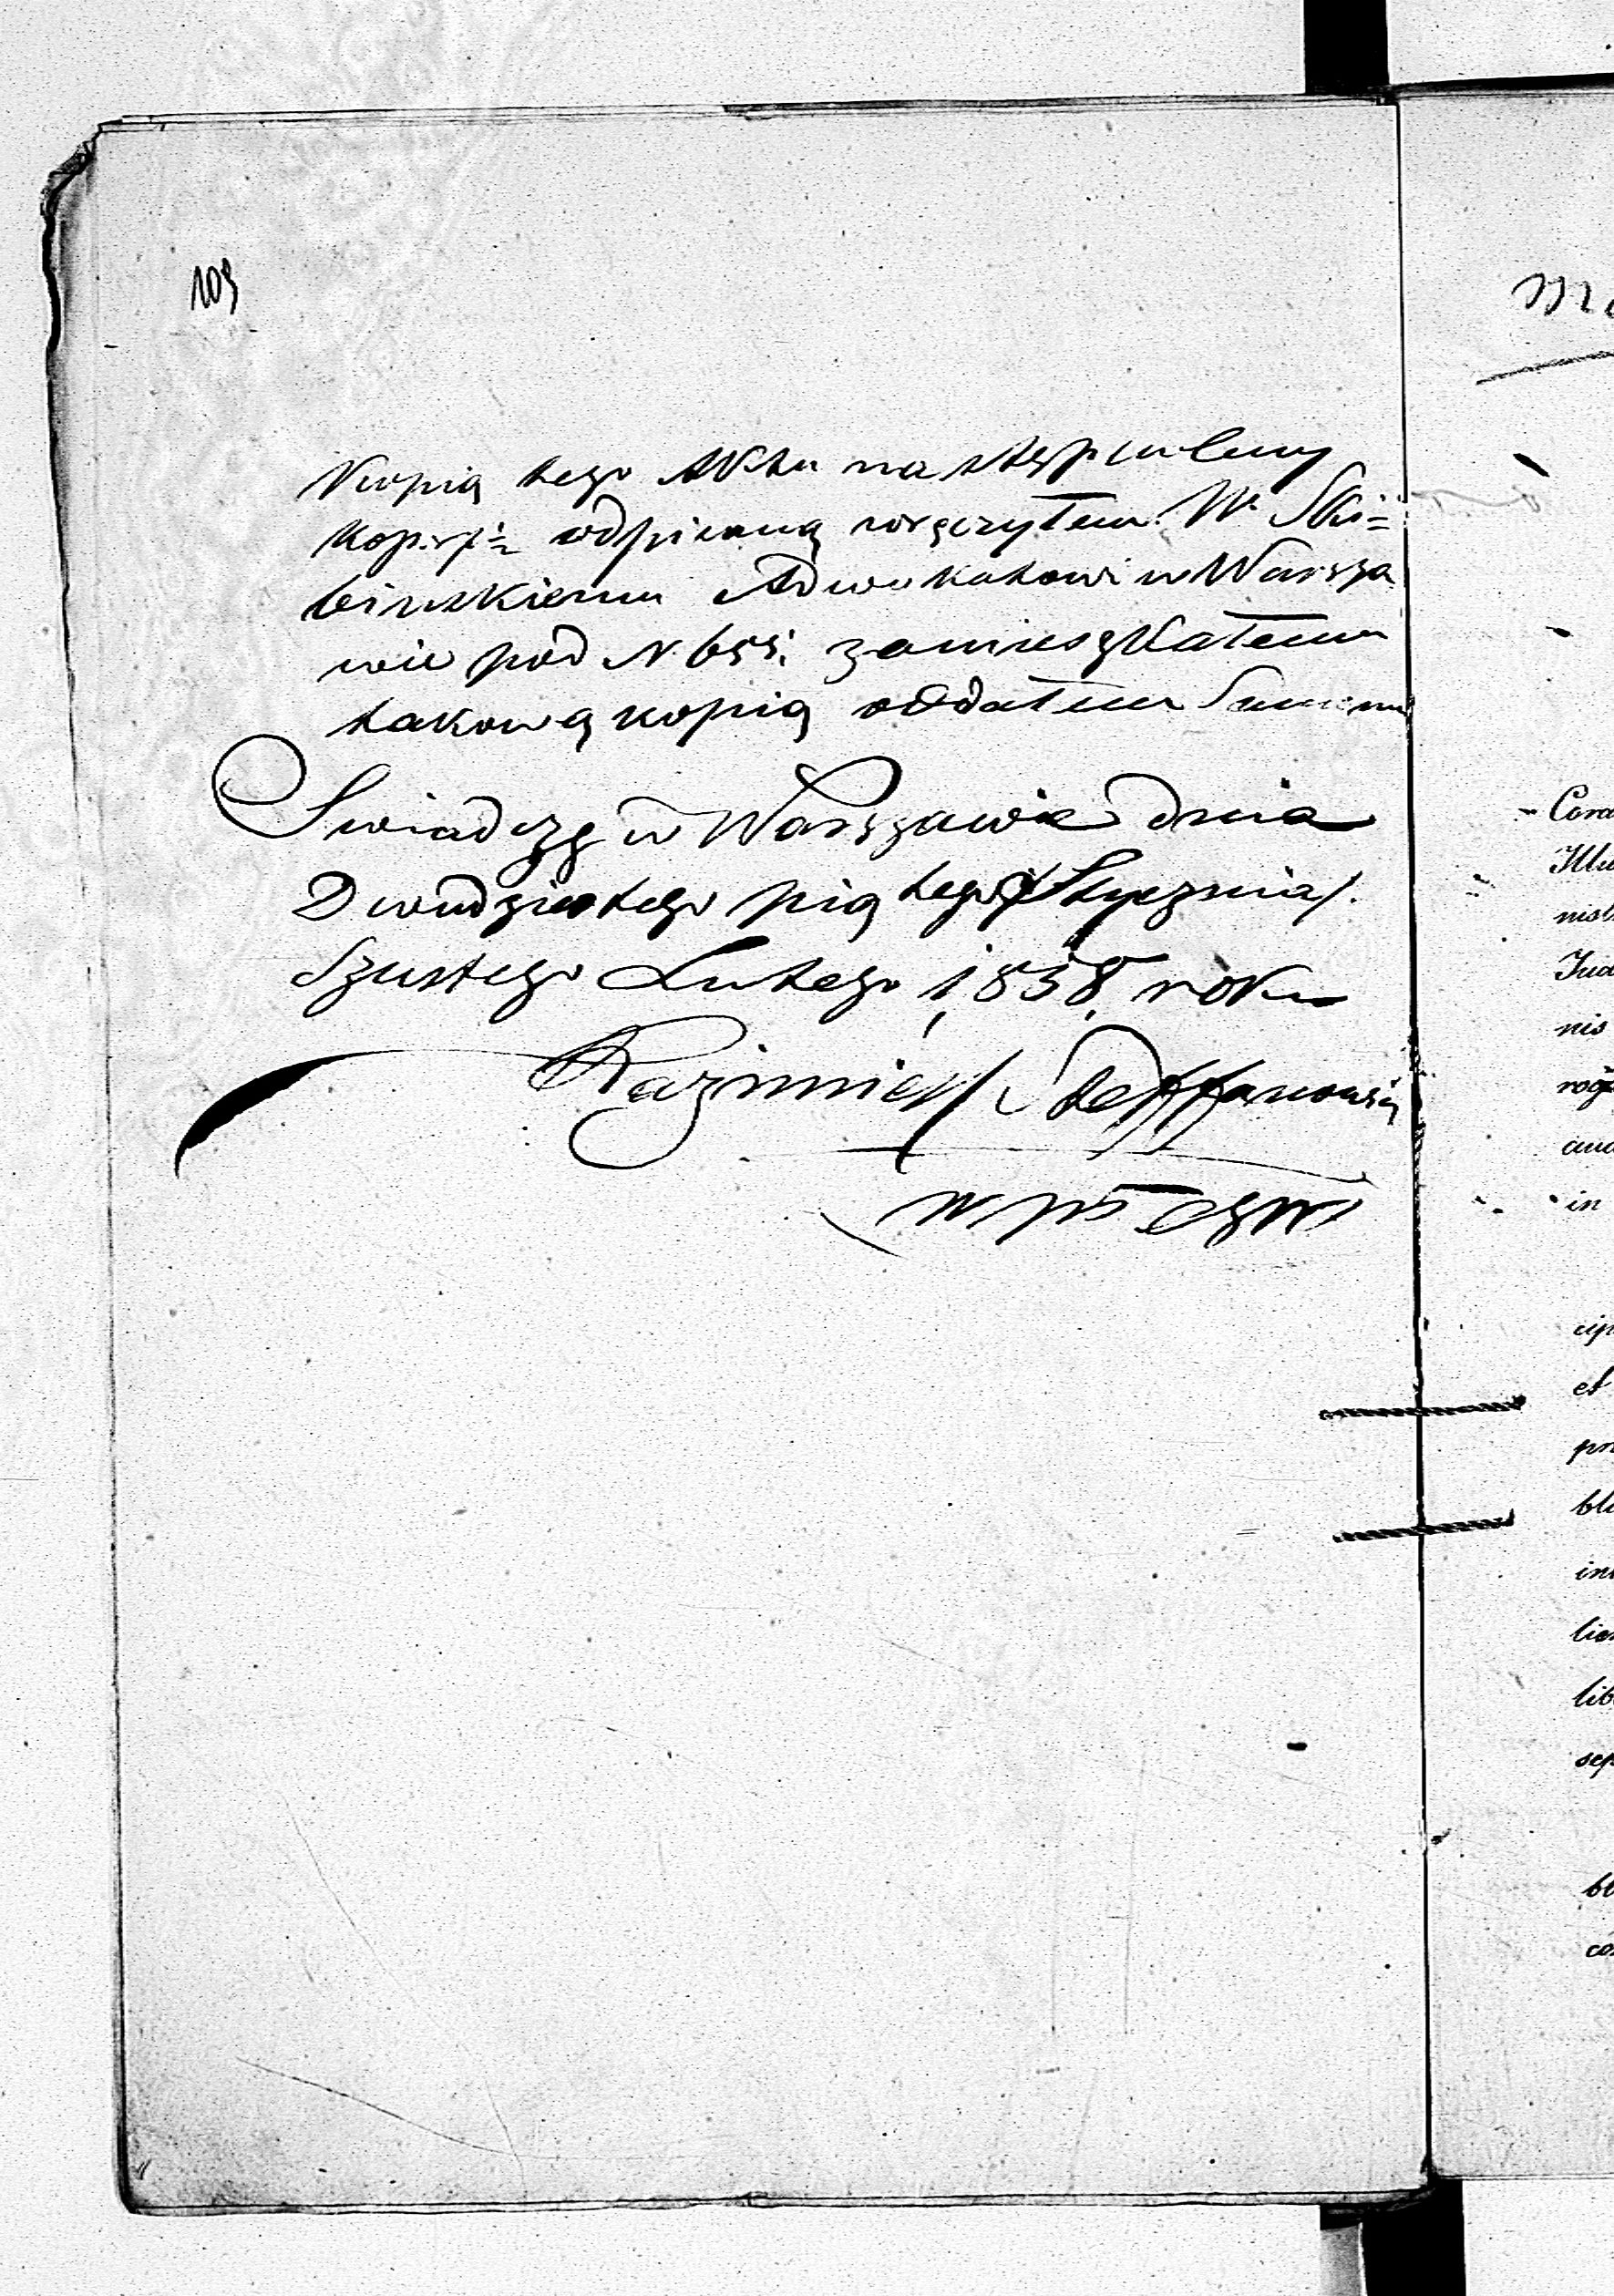 109
Kopią tego Aktu na stęplu Ceny
Kop: srž: odpisaną wręczyłem W. Ski=
bińskiemu Adwokatowi w Warsza
wie pod N 655: zamieszkałemu
takową kopią oddałem Samemu
Swiadczę w Warszawie dnia
Dwudziestego piątego Stycznia/.
Szustego Lutego 1838 roku
Kazimierz Steffanowicz
Cora
nist
nis
in
et